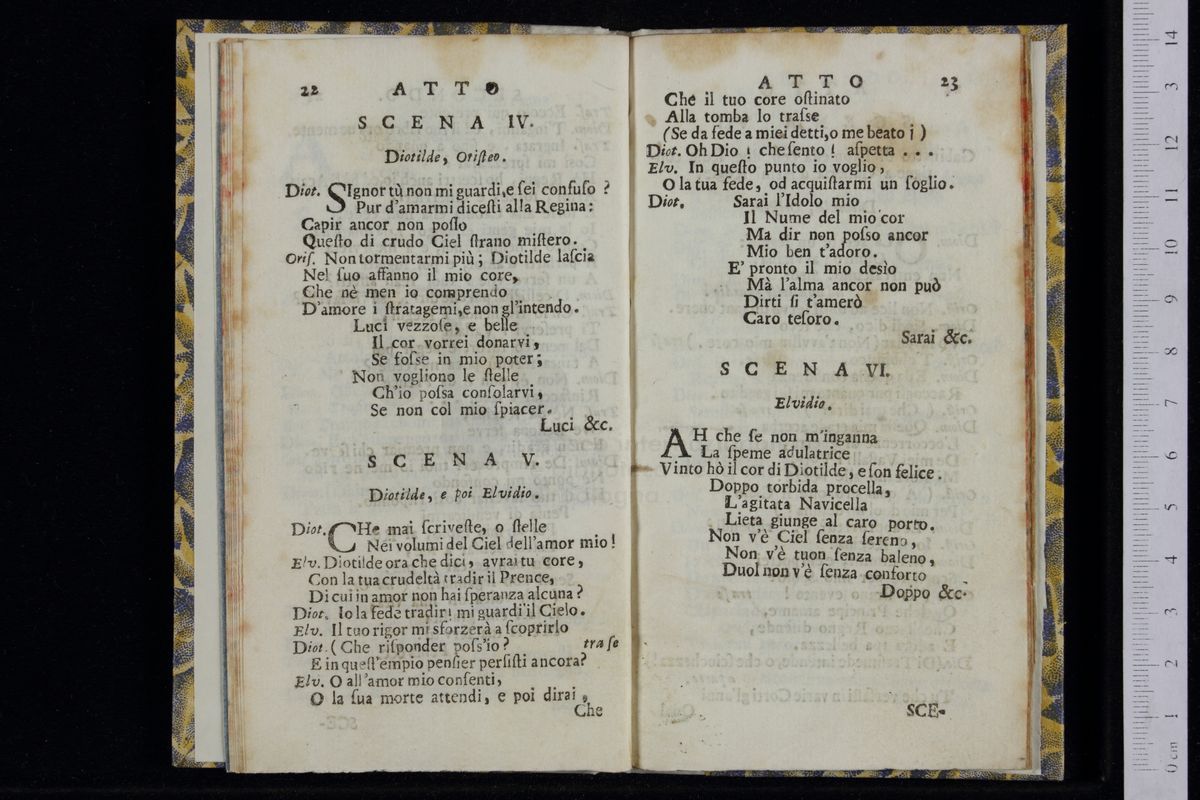 22 ATTO
SCENA IV.
Diotilde, Oriſteo.
Diot. SIgnor tù non mi guardi, e ſei confuſo ?
Pur d'amarmi diceſti alla Regina:
Capir ancor non poſſo
Queſto di crudo Ciel ſtrano miſtero.
Oriſ. Non tormentarmi più ; Diotilde laſcia
Nel ſuo affanno il mio core,
Che nè men io comprendo
D'amore i ſtratagemi, e non gl'intendo.
Luci vezzoſe, e belle
Il cor vorrei donarvi,
Se foſse in mio poter;
Non vogliono le ſtelle
Ch'io poſsa conſolarvi,
Se non col mio ſpiacer.
Luci &c.
SCENA V.
Diotilde, e poi Elvidio.
Diot. CHe mai ſcriveſte, o ſtelle
Nei volumi del Ciel dell'amor mio!
Elv. Diotilde ora che dici, avrai tu core,
Con la tua crudeltà tradir il Prence,
Di cui in amor non hai ſperanza alcuna?
Diot. Io la fede tradir! mi guardi il Cielo.
Elv. Il tuo rigor mi sforzerà a ſcoprirlo
Diot. ( Che riſponder poſs'io ? tra ſe
E in queſt'empio penſier perſiſti ancora?
Elv. O all'amor mio conſenti,
O la ſua morte attendi, e poi dirai,
Che
ATTO 23
Che il tuo core oſtinato
Alla tomba lo traſse
(Se da fede a miei detti, o me beato ¡ )
Diot. Oh Dio ! che ſento ! aſpetta . . .
Elv. In queſto punto io voglio,
O la tua fede, od acquiſtarmi un ſoglio.
Diot. Sarai l'Idolo mio
Il Nume del mio cor
Ma dir non poſso ancor
Mio ben t'adoro.
E' pronto il mio desìo
Mà l'alma ancor non può
Dirti ſi t'amerò
Caro teſoro.
Sarai &c.
SCENA VI.
Elvidio.
AH che ſe non m'inganna
La ſpeme adulatrice
Vinto hò il cor di Diotilde, e ſon felice.
Doppo torbida procella,
L'agitata Navicella
Lieta giunge al caro porto.
Non v'è Ciel ſenza ſereno,
Non v'è tuon ſenza baleno,
Duol non v'è ſenza conforto
Doppo &c.
SCE-
0 cm 1 2 3 4 5 6 7 8 9 10 11 12 13 14